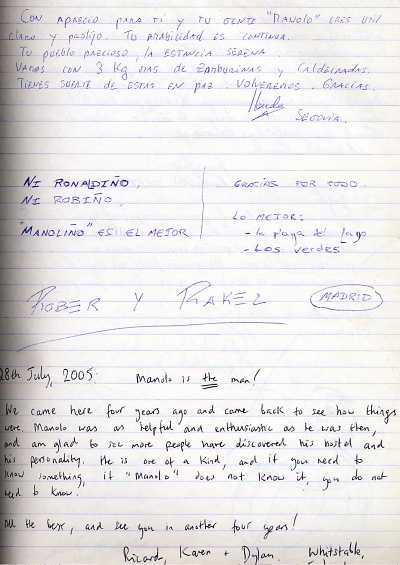 CON APRECIO PARA TI Y TU GENTE "MANOLO" ERES UTIL
CLARO Y PROLIJO. TU AMABILIDAD ES CONTINUA.
TU PUEBLO PRECIOSO, LA ESTANCIA SERENA
VAMOS CON 3 Kg MAS DE ZAMBURINAS Y CALDEIRADAS.
TIENES SUERTE DE ESTAR EN PAZ. VOLVEREMOS. GRACIAS.
SEGOVIA.
NI RONALDIÑO,
NI ROBIÑO,
"MANOLIÑO" ES EL MEJOR
GRACIAS POR TODO.
LO MEJOR:
- la playa del Lago
- LOS VERDES
ROBER Y RAKEL
MADRID
28th July, 2005.
Manolo is the man!
We came here four years ago and came back to see how things
were. Manolo was as helpful and enthusiastic as he was then,
and am glad to see more people have discovered his hostal and
his personality. He is one of a kind, and if you need to
know something, if "Manolo" does not know it, you do not
need to know.
All the best, and see you in another four years!
Ricard, Karen + Dylan.
Whitstable,